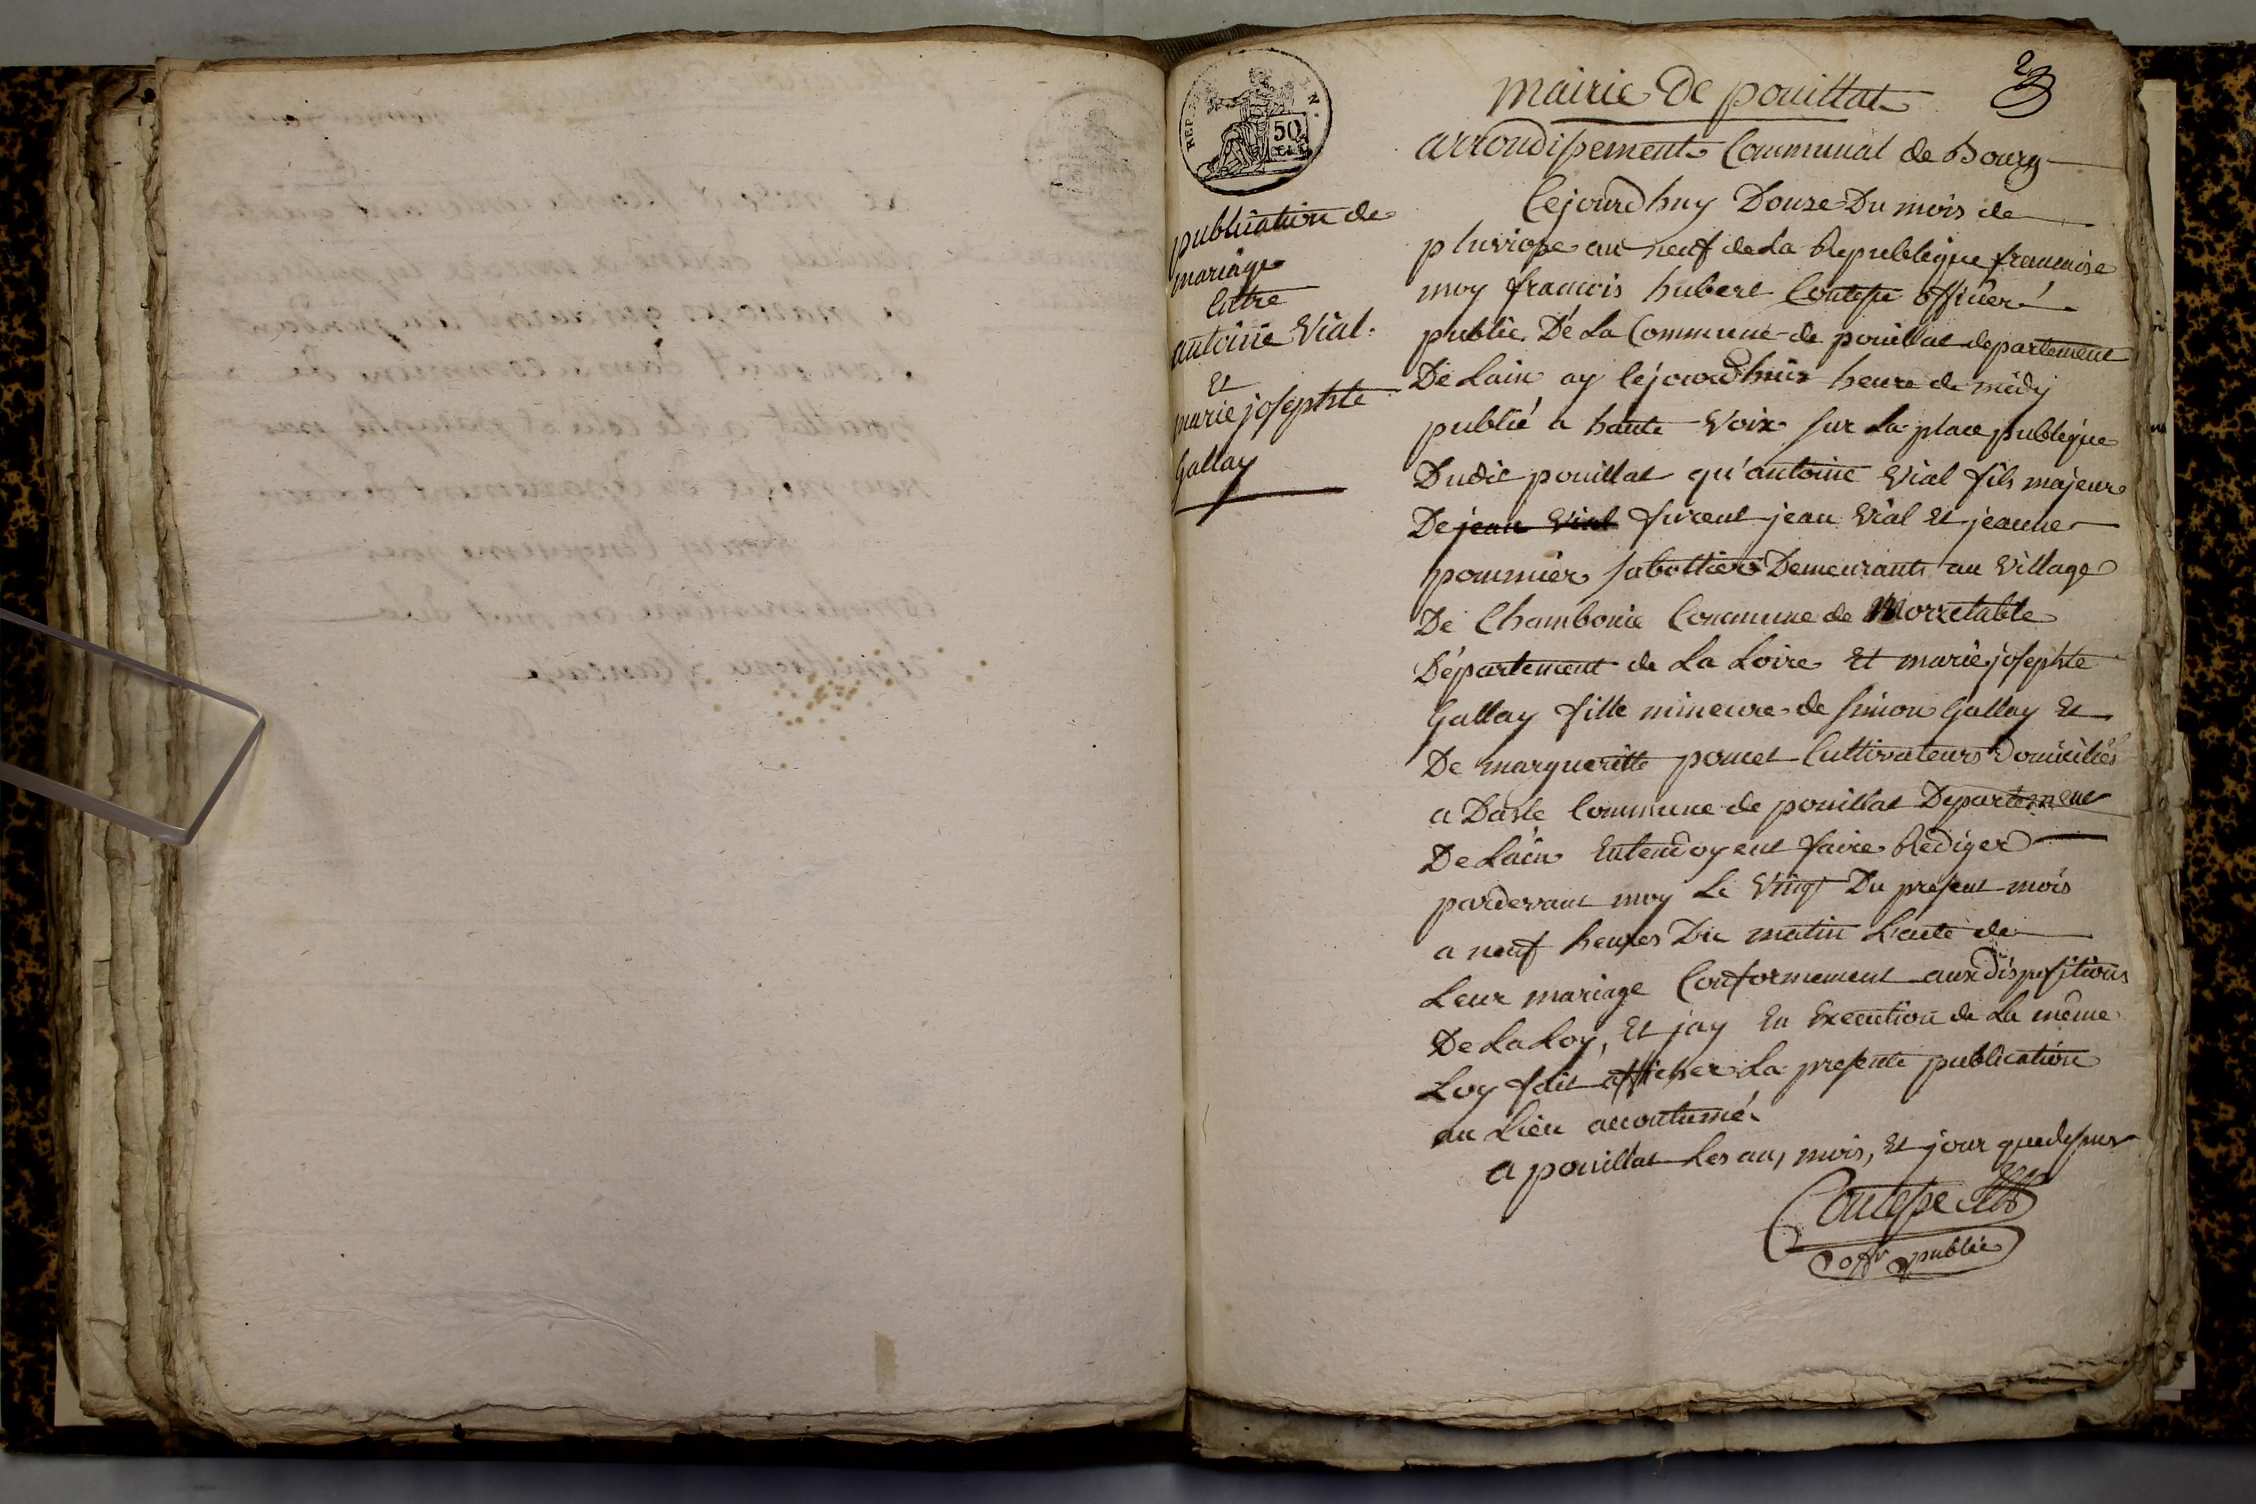 REP.
50
publication de
mariage
Entre
antoine Vial.
Et
marie josephte
Gallay
2
mairie De pouillat
arrondissement Communal de Bourg
Cejourdhuy Douze Du mois de
pluviose an neuf de La Republique francaise
moy francois hubert Coutesse officier
public De La Commune de pouillat departement
De Lain ay cejourdhuis heure de midy
publié a haute Voix sur La place publique
Dudit pouillat qu'antoine Vial fils majeur
De jean Vial furent jean Vial Et jeanne
pommier sabottiers Demeurants au Village
De Chambonie Commune de Morretable
Département de La Loire Et marie josephte
Gallay fille mineure de simon Gallay Et
De margueritte poncet Cultivateurs Domiciliés
a Dasle Commune de pouillat Departement
De Lain Entendoyent faire Rédiger
pardevant moy Le Vingt Du present mois
a neuf heures Du matin L'acte de
Leur mariage Conformement aux dispositions
De La Loy, Et jay En Execution de La même
Loy fait afficher La presente publication
au Lieu accoutumé
a pouillat Les an, mois, Et jour que dessus
Coutesse
offr public